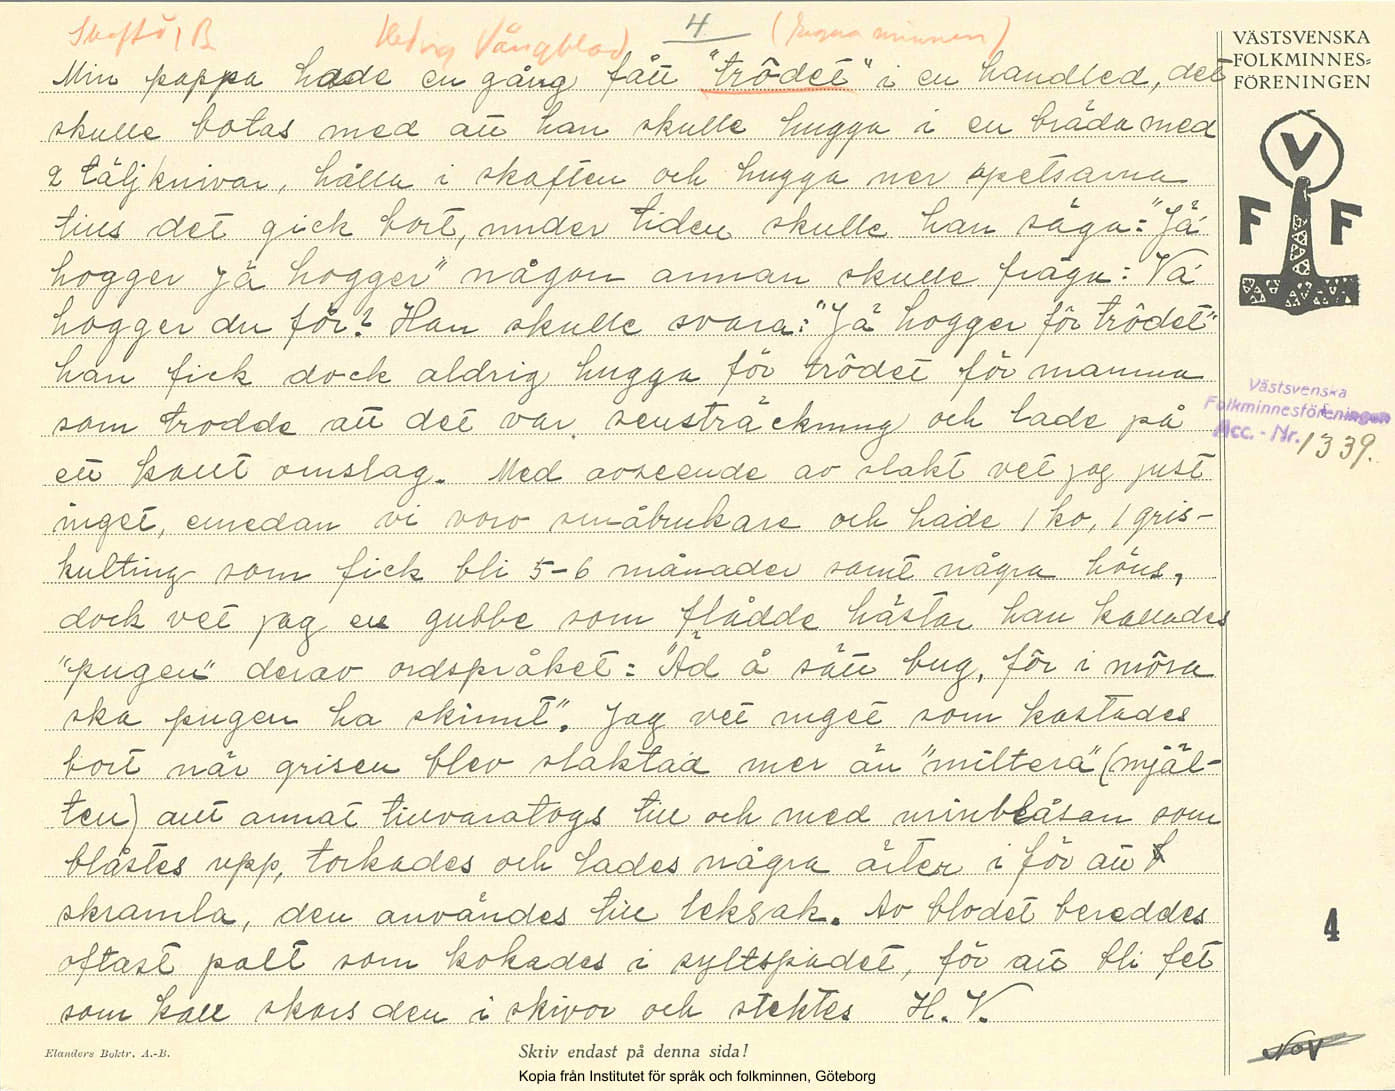 Skaftö, B Hedvig Vångblad 4 (Egna minnen)
VÄSTSVENSKA
FOLKMINNES=
FÖRENINGEN
V
F F
Min pappa hade en gång fått "trôdet" i en handled, det
skulle botas med att han skulle hugga i en bräda med
2 täljknivar, hålla i skaften och hugga ner spetsarna
tills det gick bort, under tiden skulle han säga: "Jä
hogger jä hogger" någon annan skulle fråga: Va
hogger du för? Han skulle svara: "Jä hogger för trôdet"
han fick dock aldrig hugga för trôdet för mamma
som trodde att det var sensträckning och lade på
ett kallt omslag. Med avseende av slakt vet jag just
inget, emedan vi voro småbrukare och hade 1 ko, 1 gris-
kulting som fick bli 5-6 månader samt några höns,
dock vet jag en gubbe som flådde hästar han kallades
"pugen" derav ordspråket: "Äd å sätt bug, för i môra
ska pugen ha skinnt". Jag vet inget som kastades
bort när grisen blev slaktad mer än "milterä" (mjäl-
ten) allt annat tillvaratogs till och med urinblåsan som
blåstes upp, torkades och lades några ärter i för att
skramla, den användes till leksak. Av blodet bereddes
oftast palt som kokades i syltspadet, för att bli fet
som kall skars den i skivor och stektes H. V.
Västsvenska
Folkminnesföreningen
Acc. - Nr. 1339.
4
Nov
Elanders Boktr. A.-B.
Skriv endast på denna sida!
Kopia från Institutet för språk och folkminnen, Göteborg